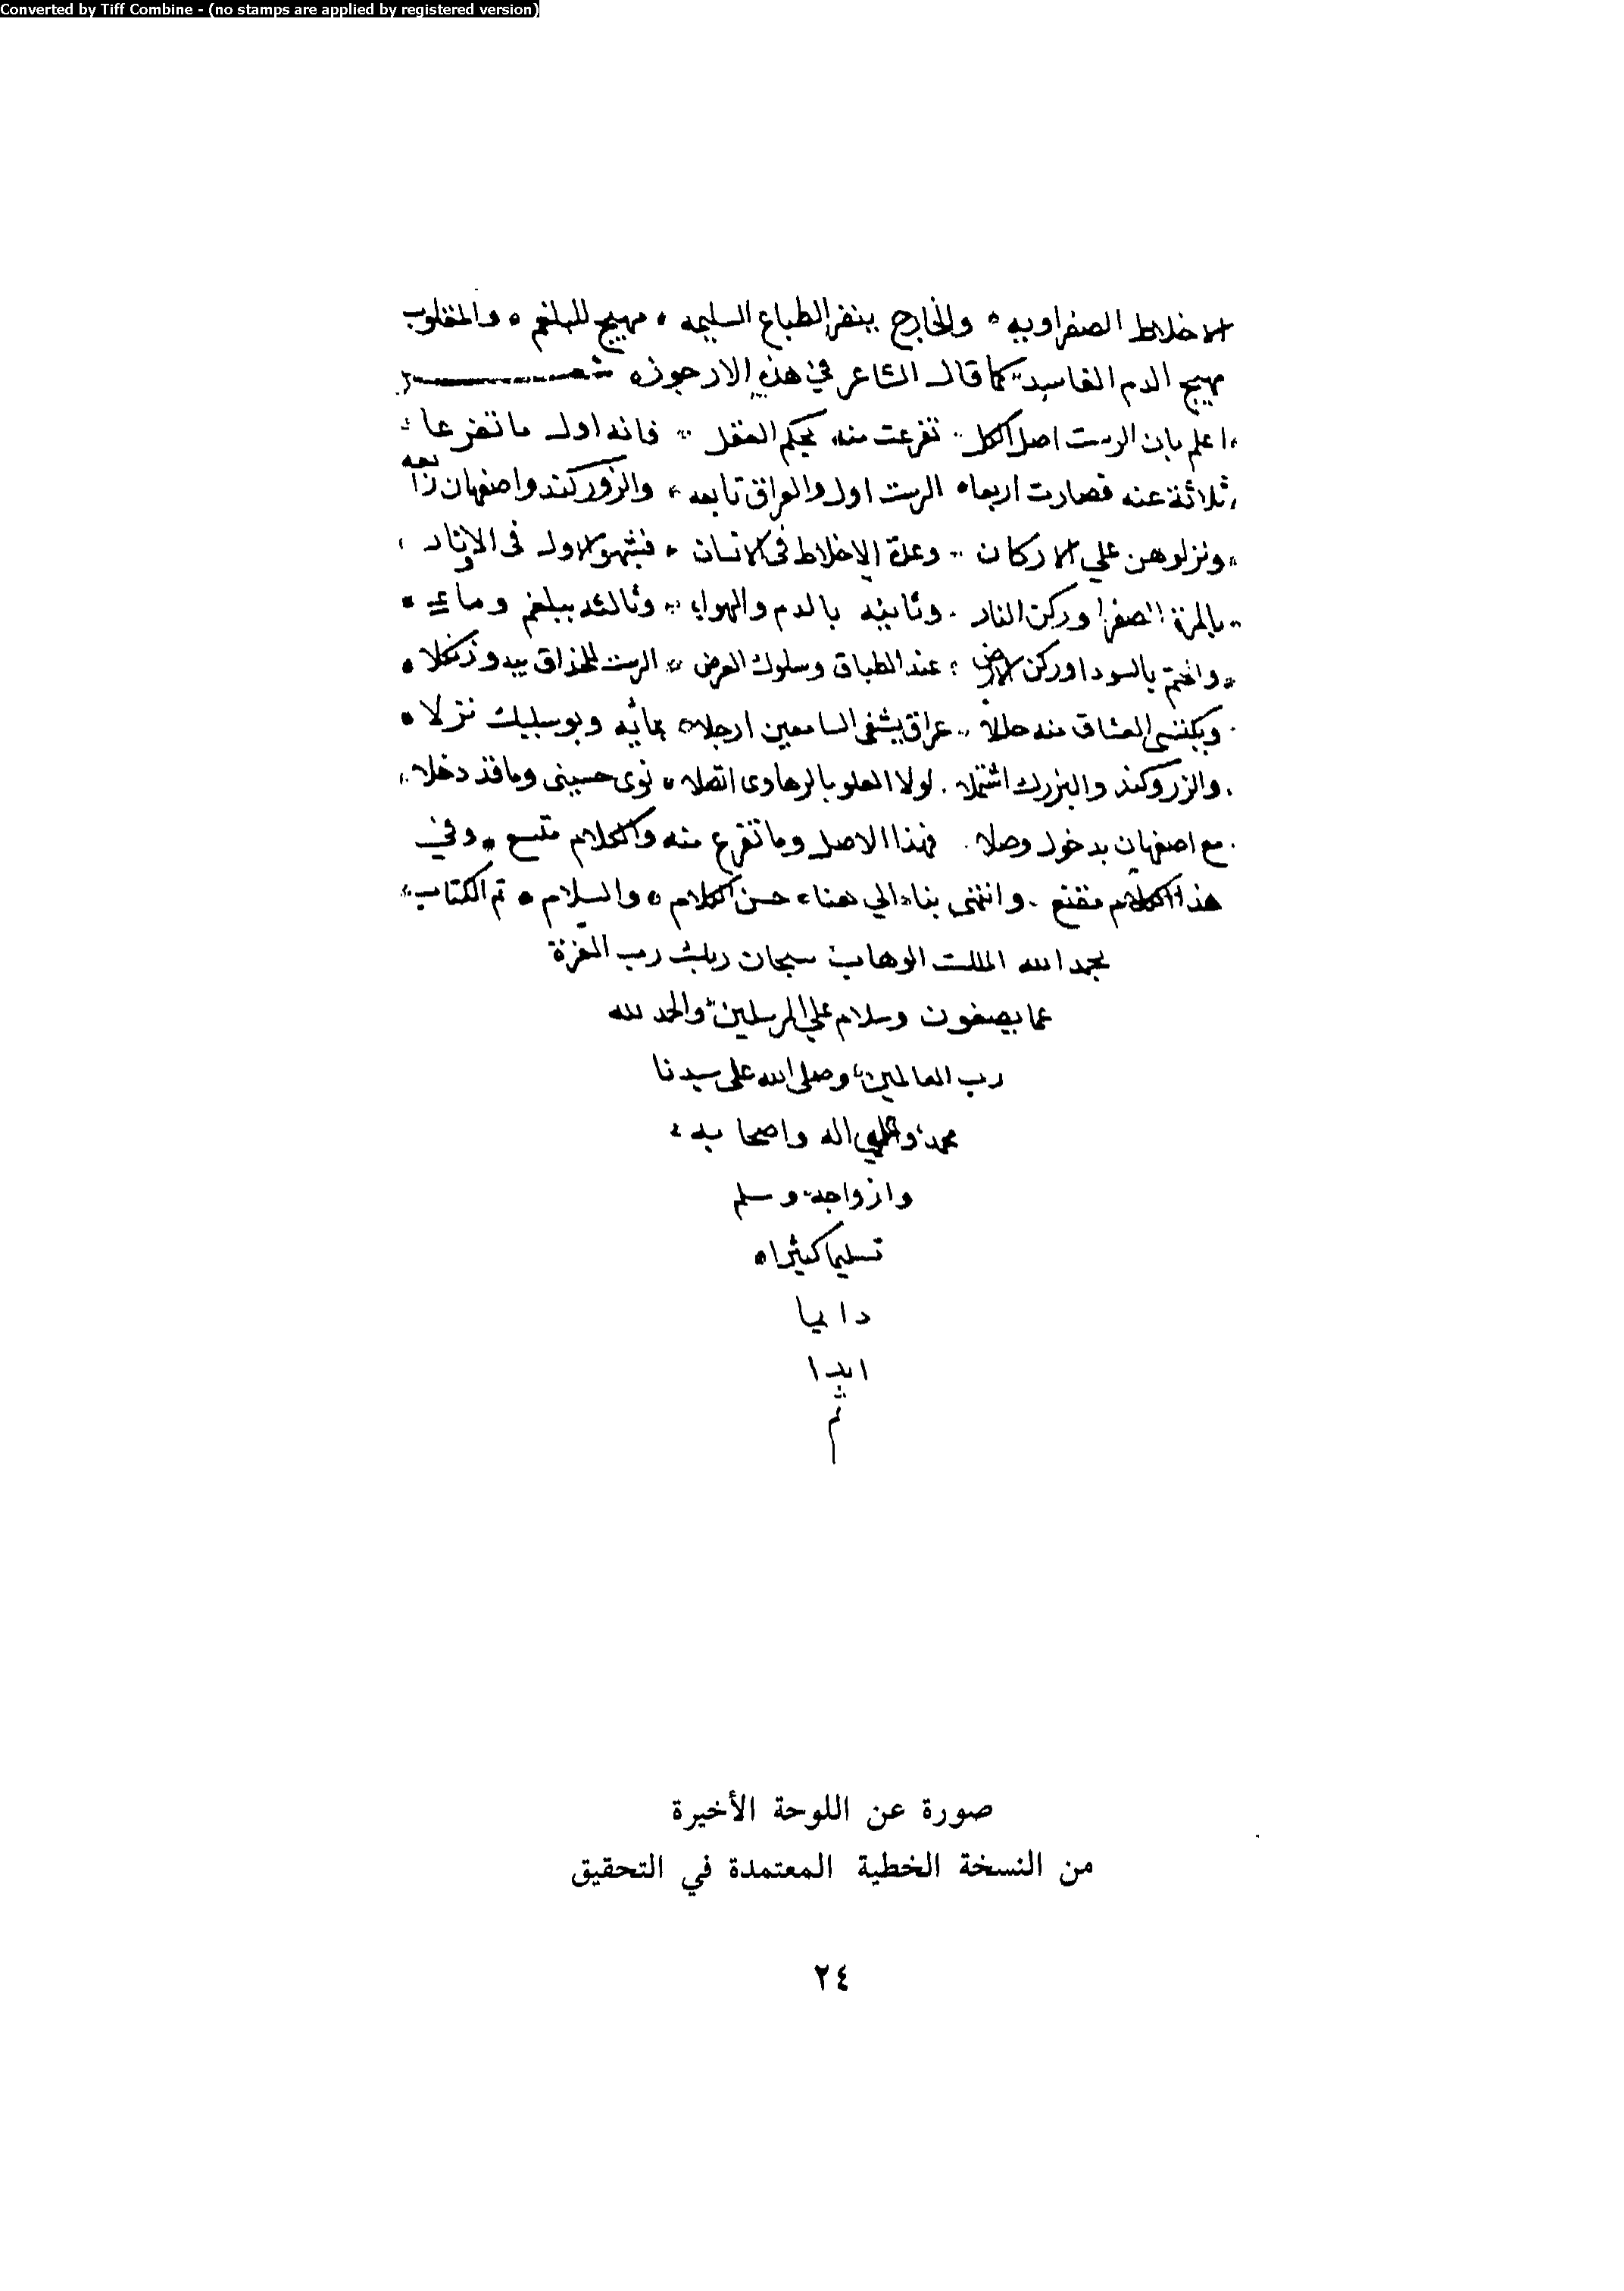 Converted by Tiff Combine - (no stamps are applied by registered version)
الاخلاط الصفراويه والخارج ينفر الطباع السليمه مهيج للبلغم والمقلوب
مهيج الدم الفاسد كما قال الشاعر في هذه الارجوزه شعر
اعلم بان الرست اصل الكل تفرعت منه بحكم العقل فانه اول ما تفرعا
ثلاثة عنه فصارت اربعاه الرست اول والعراق تابعه والزوركند واصفهان رابعه
ونزلوهن علي الاركان وعدة الاخلاط في الانسان فشبهوا الاول في الاثار
بالمرة الصفرا وركن النار وثانيه بالدم والهواء وثالثه ببلغم وماء
واختم بالسودا وركن الارض عند الطباق وسلوك العرض الرست للحذاق يبدو زنكلا
ويكتسي العشاق منه حللا عراق يشفى السامعين ارجلا مائه وبوسليك نزلا
والزروكند والبزرك اشتملا لولا العلو بالرهاوى اتصلا نوى حسينى وما قد دخلا
مع اصفهان بدخول وصلا فهذا الاصل وما تفرع منه والكلام متسع وفي
هذا الكلام مقنع وانتهى بنا الي هنا حسن الكلام والسلام تم الكتاب
بحمد الله الملك الوهاب سبحان ربك رب العزة
عما يصفون وسلام علي المرسلين والحمد لله
رب العالمين وصلى الله على سيدنا
محمد وعلي اله واصحابه
وازواجه وسلم
تسليما كثيرا
دايما
ابدا
تم
صورة عن اللوحة الأخيرة
من النسخة الخطية المعتمدة في التحقيق
٢٤